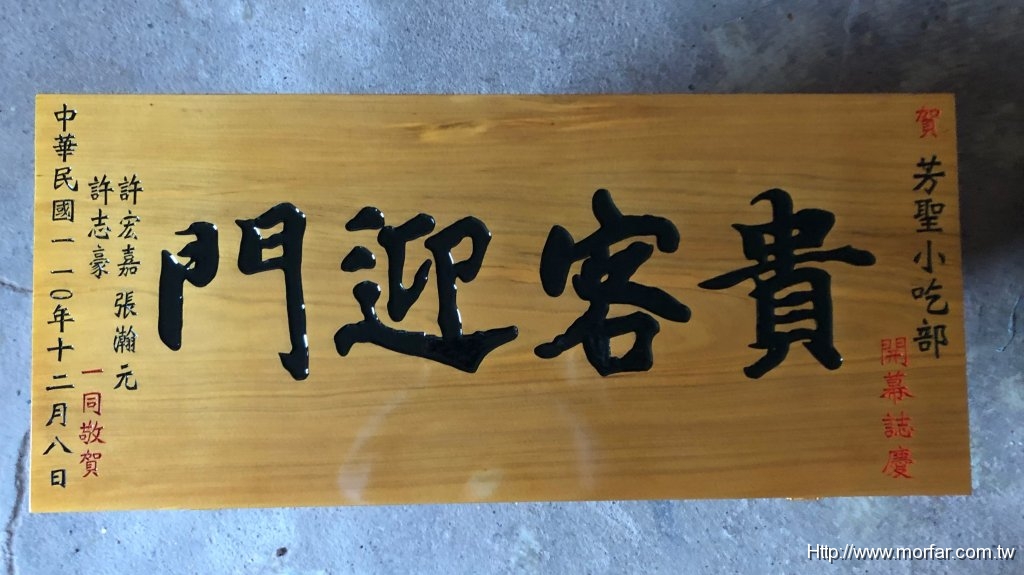 賀 芳聖小吃部
開幕誌慶
貴客迎門
許宏嘉 張瀚元
許志豪
一同敬賀
中華民國一一〇年十二月八日
Http://www.morfar.com.tw